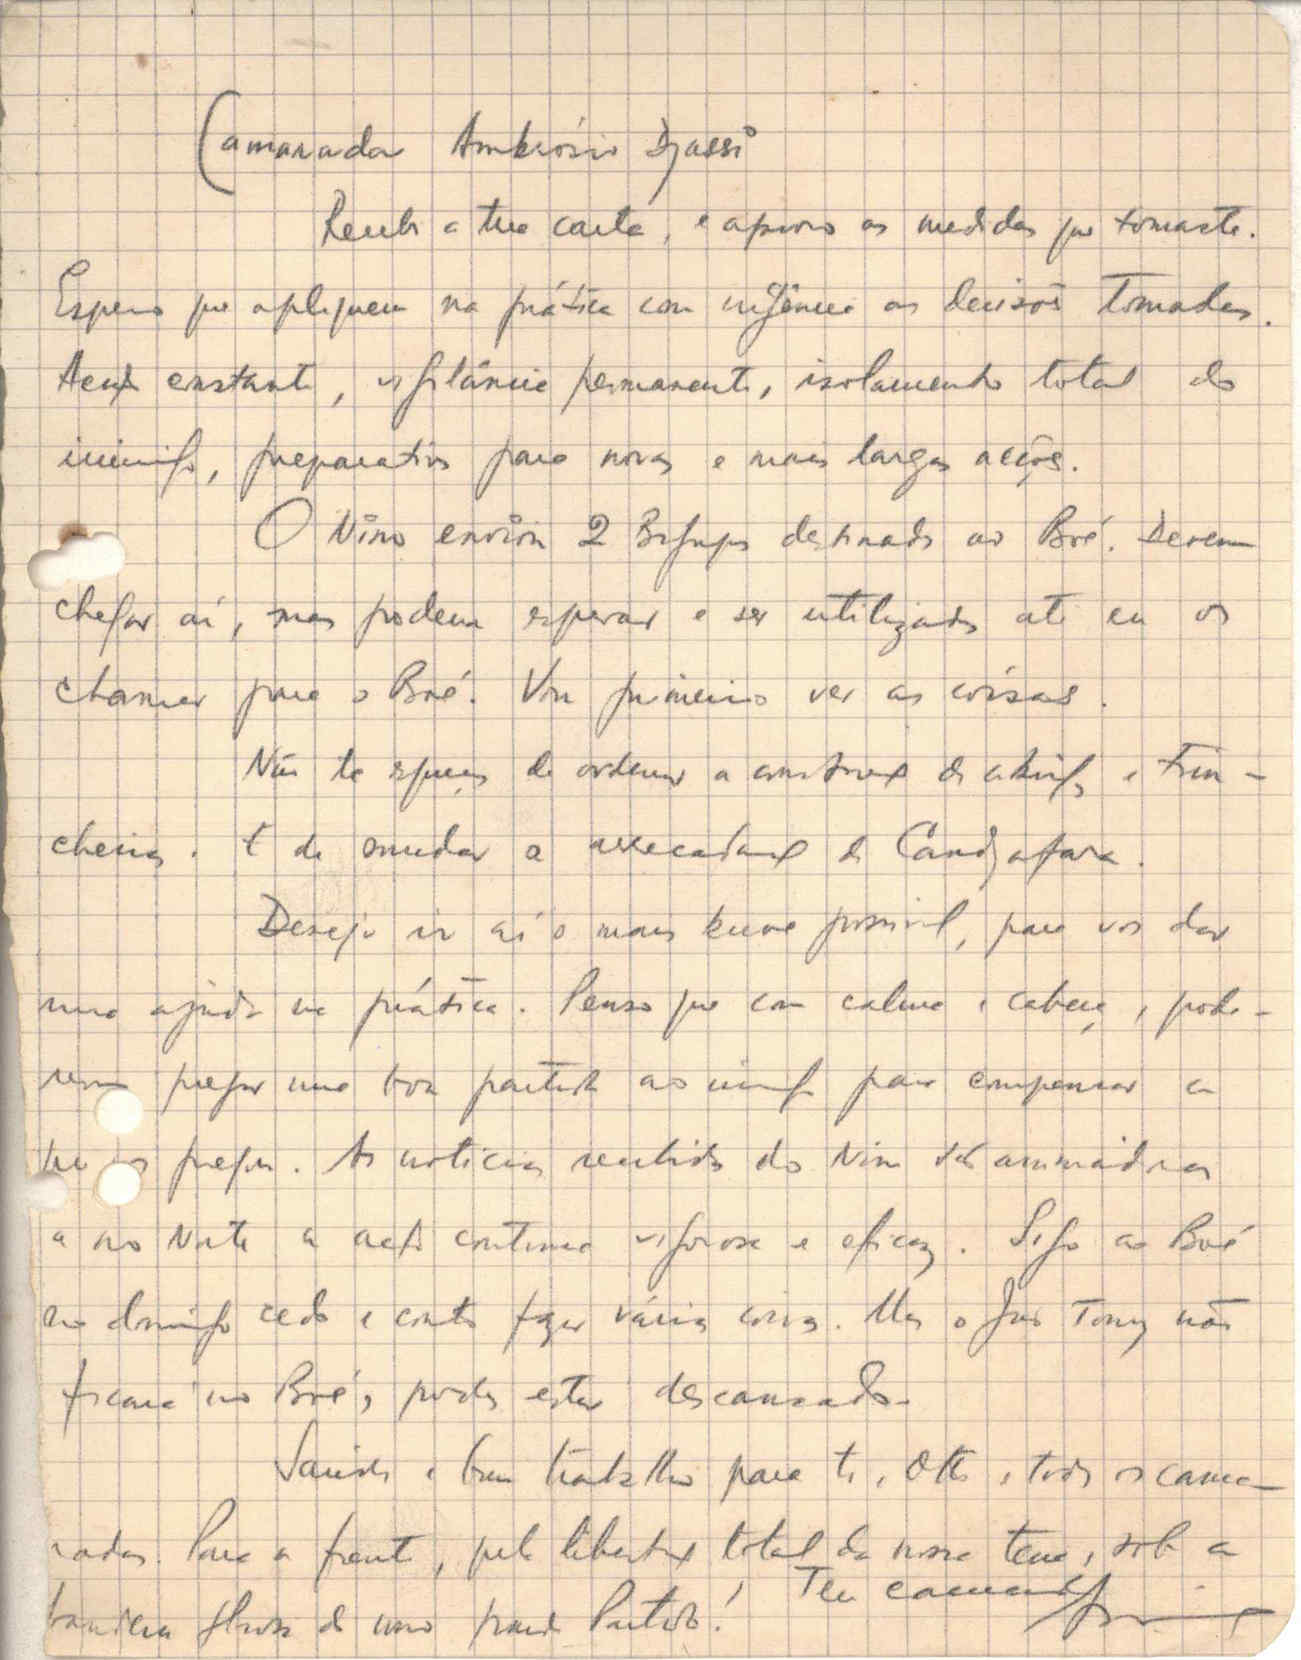 Camarada Ambrósio Djassi
Recebi a tua carta, e aprovo as medidas que tomaste.
Espero que apliquem na prática com urgência as decisões tomadas.
Acção constante, vigilância permanente, isolamento total do
inimigo, preparativos para novas e mais largas acções.
O Nino enviou 2 Bigrupos destinados ao Boé. Devem
chegar aí, mas podem esperar e ser utilizados até eu os
chamar para o Boé. Vou primeiro ver as coisas.
Não te esqueças de ordenar a construção de abrigos e trin-
cheiras. E de mudar a arrecadação de Candjafara.
Desejo ir aí o mais breve possível, para vos dar
uma ajuda na prática. Penso que com calma e cabeça, pode-
remos pregar uma boa partida ao inimigo para compensar a
que nos pregou. As notícias recebidas do Nino são animadoras
e no Norte a acção continua vigorosa e eficaz. Sigo ao Boé
no domingo cedo e conto fazer várias coisas. Mas o João Tomaz não
ficará no Boé, podes estar descansado.
Saúde e bom trabalho para ti, Otto e todos os cama-
radas. Para a frente, pela libertação total da nossa terra, sob a
bandeira gloriosa do nosso grande Partido! Teu camarada